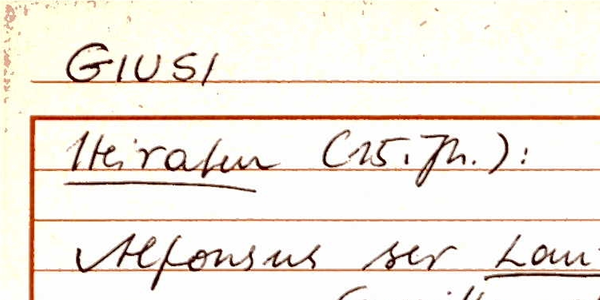 GIUSI
Heiraten (15. Jh.):
Alfonsus ser Lau